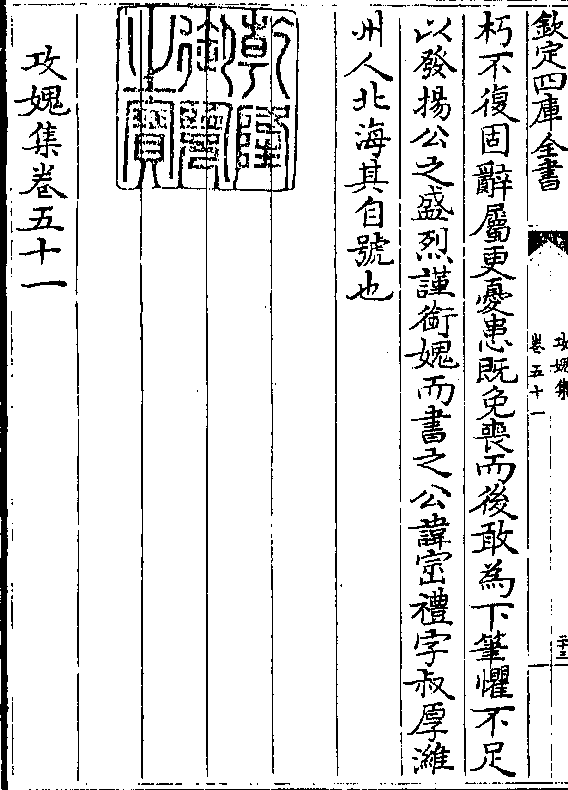 欽定四庫全書
攻媿集
卷五十一
朽不復固辭屬更憂患既免喪而後敢為下筆懼不足
以發揚公之盛烈謹銜媿而書之公諱密禮字叔厚濰
州人北海其自號也
乾隆
御覽
之寶
攻媿集卷五十一